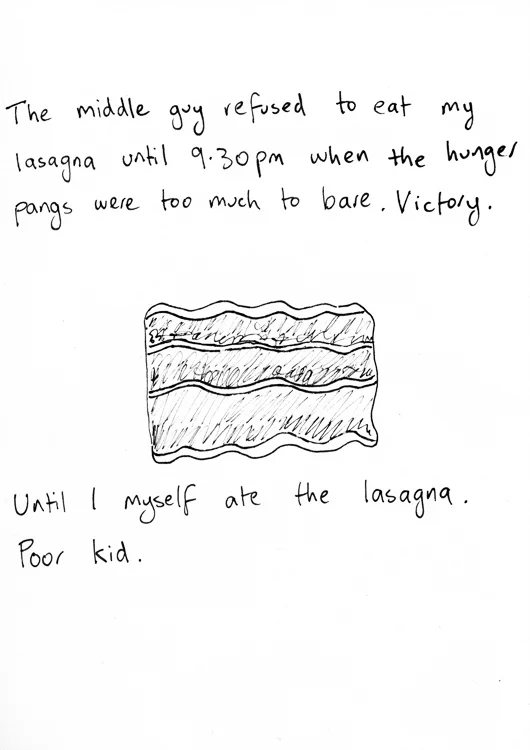 The middle guy refused to eat my
lasagna until 9.30pm when the hunger
pangs were too much to bare. Victory.
Until I myself ate the lasagna.
Poor kid.